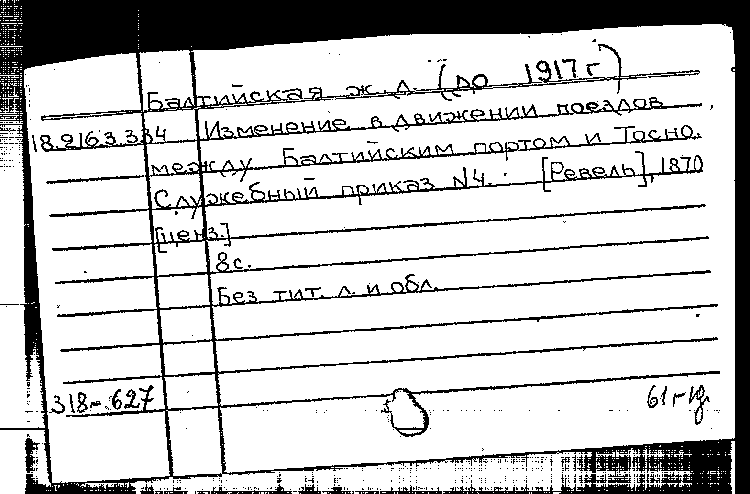 Балтийская ж. д. (до 1917 г)
18.216.3.334 Изменение в движении поездов
между Балтийским портом и Тосно.
Служебный приказ N4. [Ревель], 1870
[ценз.]
8 с.
Без тит. л. и обл.
318-627